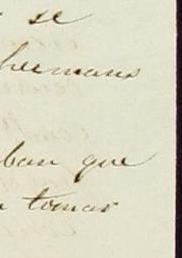 se
hermans
ban que
tomar